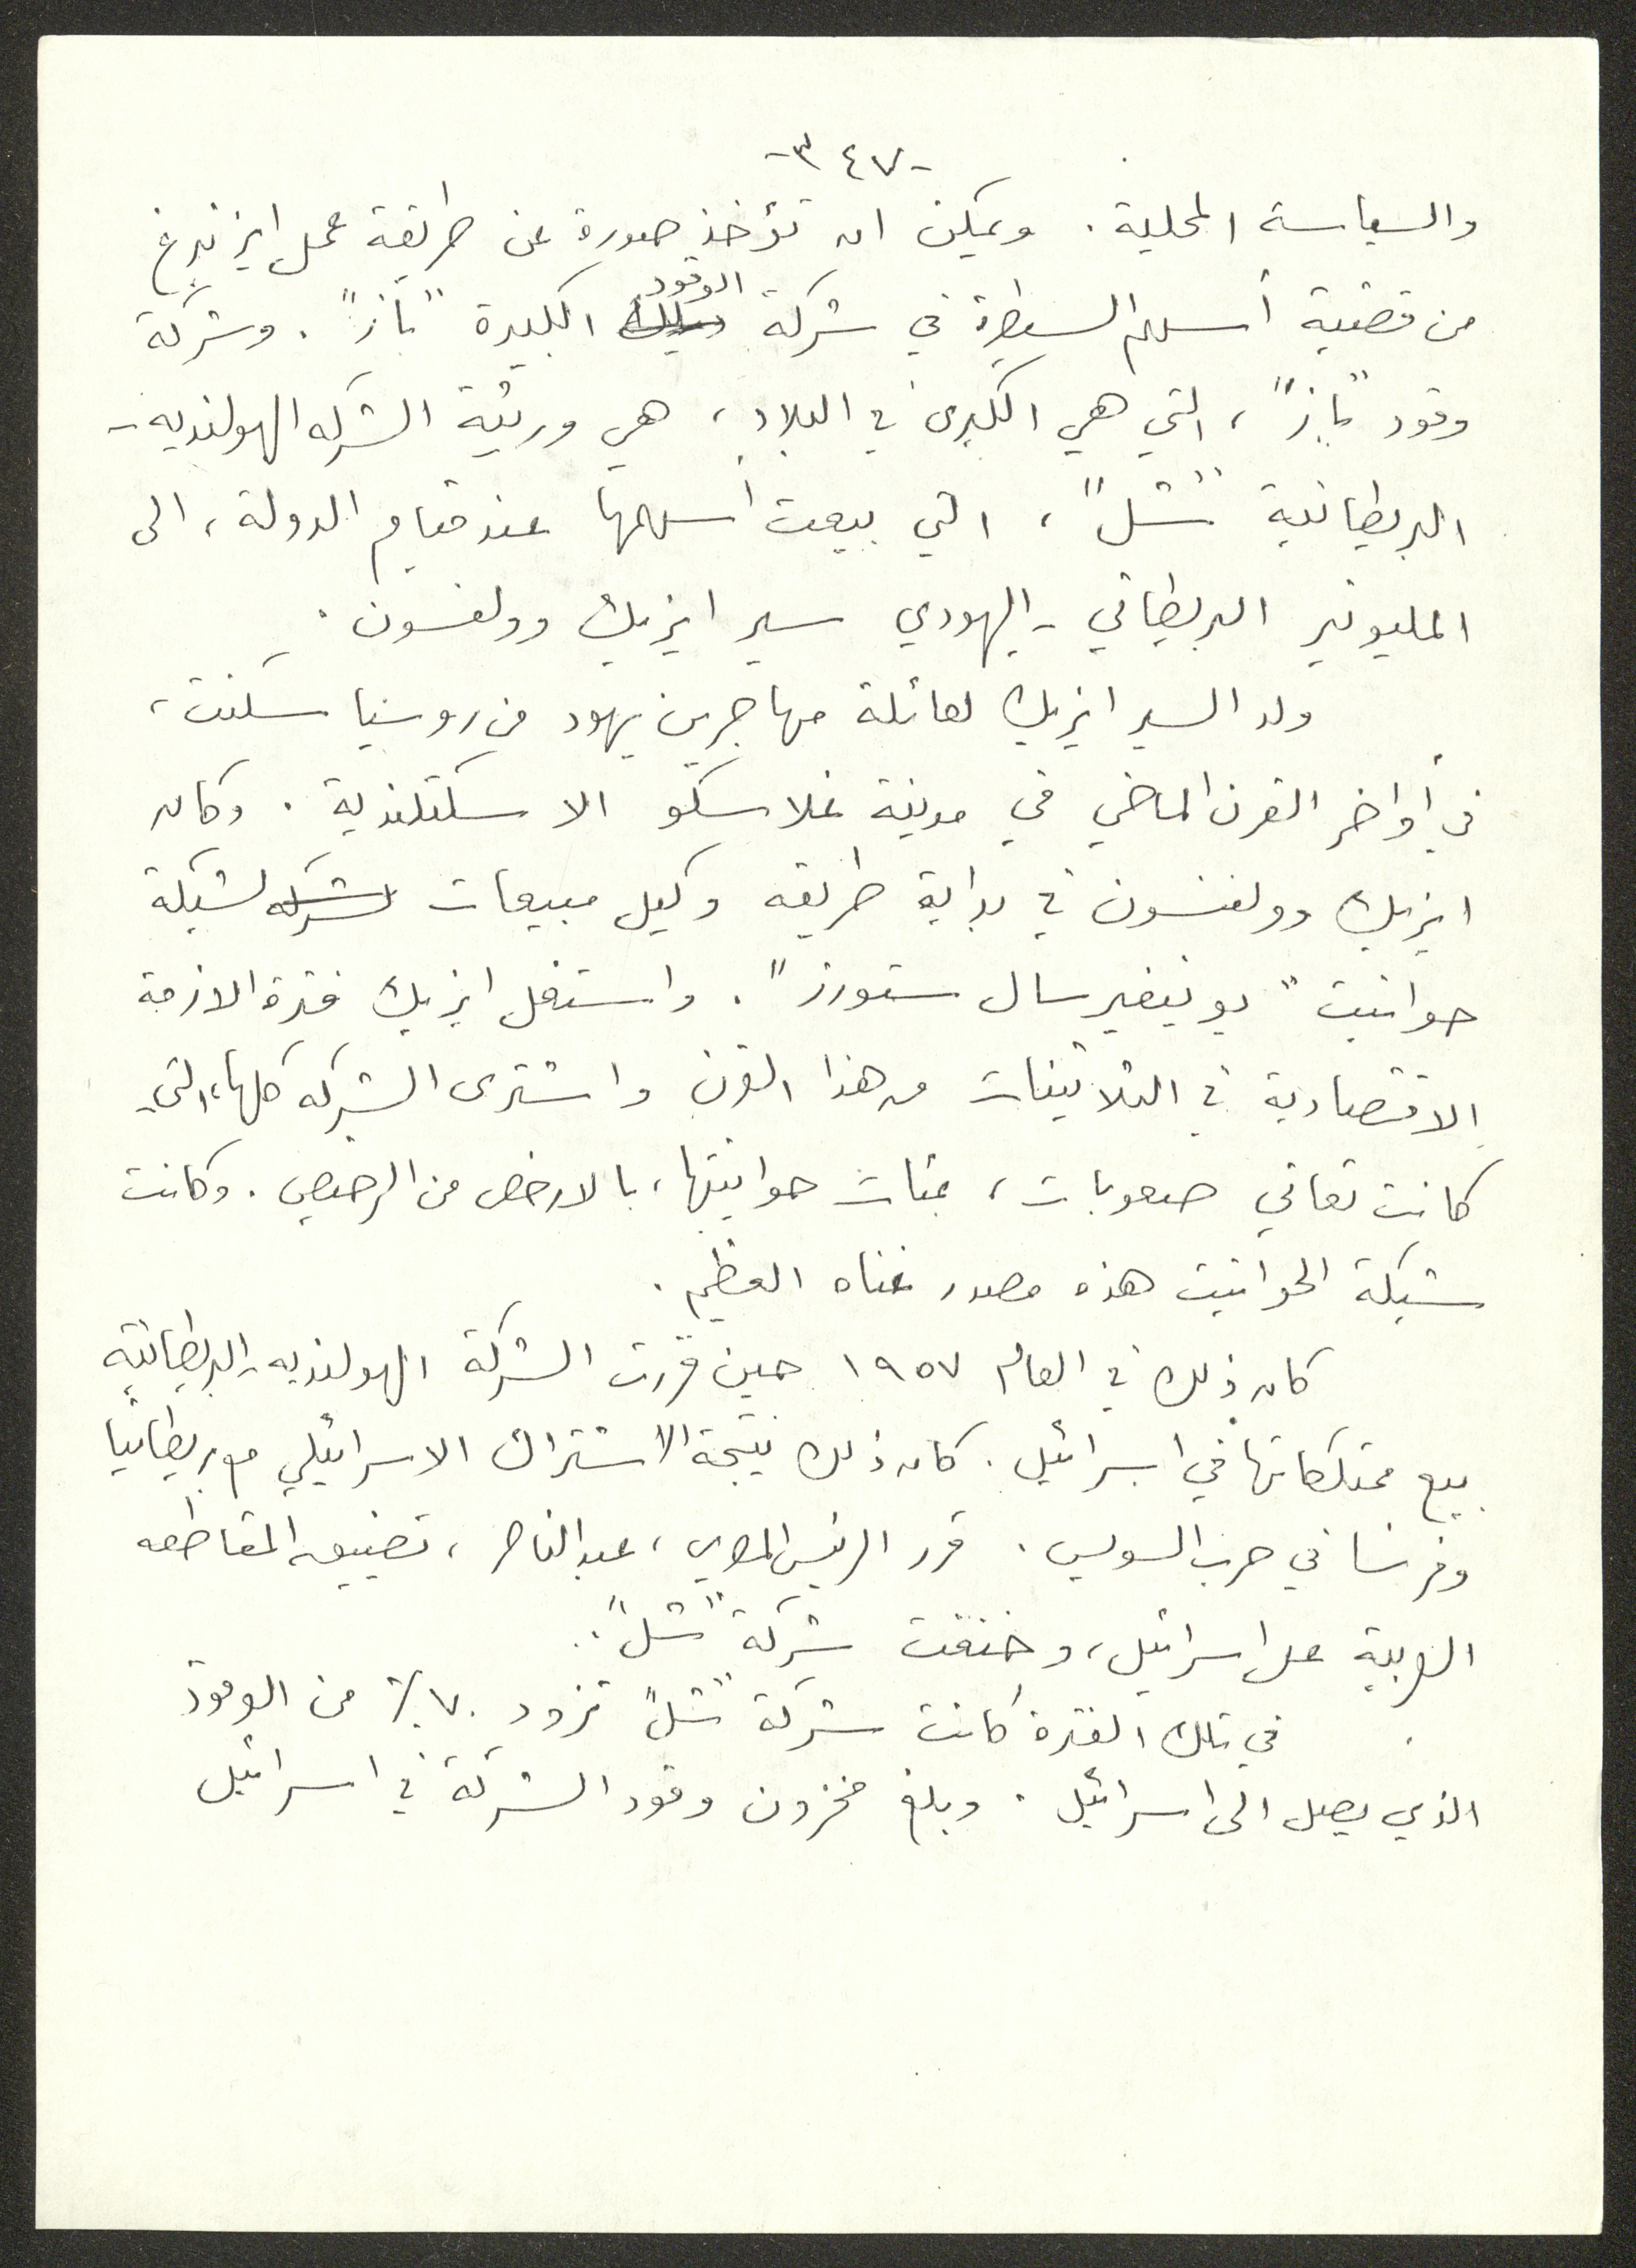 -٣٤٧-
والسياسة المحلية. ويمكن ان تؤخذ صورة عن طريقة عمل ايزنبرغ
من قضية أسهم السيطرة في شركة الوقود الكبيرة "باز". وشركة
وقود "باز"، التي هي الكبرى في البلاد، هي وريثة الشركه الهولنديه-
البريطانية "شل"، التي بيعت أسهمها عند قيام الدولة، الى
المليونير البريطاني-اليهودي سير ايزيك وولفسون.
ولد السير ايزيك لعائلة مهاجرين يهود من روسيا سكنت،
في أواخر القرن الماضي في مدينة غلاسكو الاسكتلندية. وكان
ايزيك وولفسون في بداية طريقه وكيل مبيعات لشركه لشبكة
حوانيت "يونيفيرسال ستورز". واستغل ايزيك فترة الازمة
الاقتصادية في الثلاثينات من هذا القرن واشترى الشركه كلها، التي
كانت تعاني صعوبات، بمئات حوانيتها، بالارخص من الرخيص. وكانت
شبكة الحوانيت هذه مصدر غناه العظيم.
كان ذلك في العام ١٩٥٧ حين قررت الشركة الهولنديه-البريطانيه
بيع ممتلكاتها في اسرائيل. كان ذلك نتيجة الاشتراك الاسرائيلي مع بريطانيا
وفرنسا في حرب السويس. قرر الرئيس المصري، عبد الناصر، تضييق المقاطعه
العربية على اسرائيل، وخنقت شركة "شل".
في تلك الفترة كانت شركة "شل" تزود ٧٠٪ من الوقود
الذي يصل الى اسرائيل. وبلغ مخزون وقود الشركة في اسرائيل